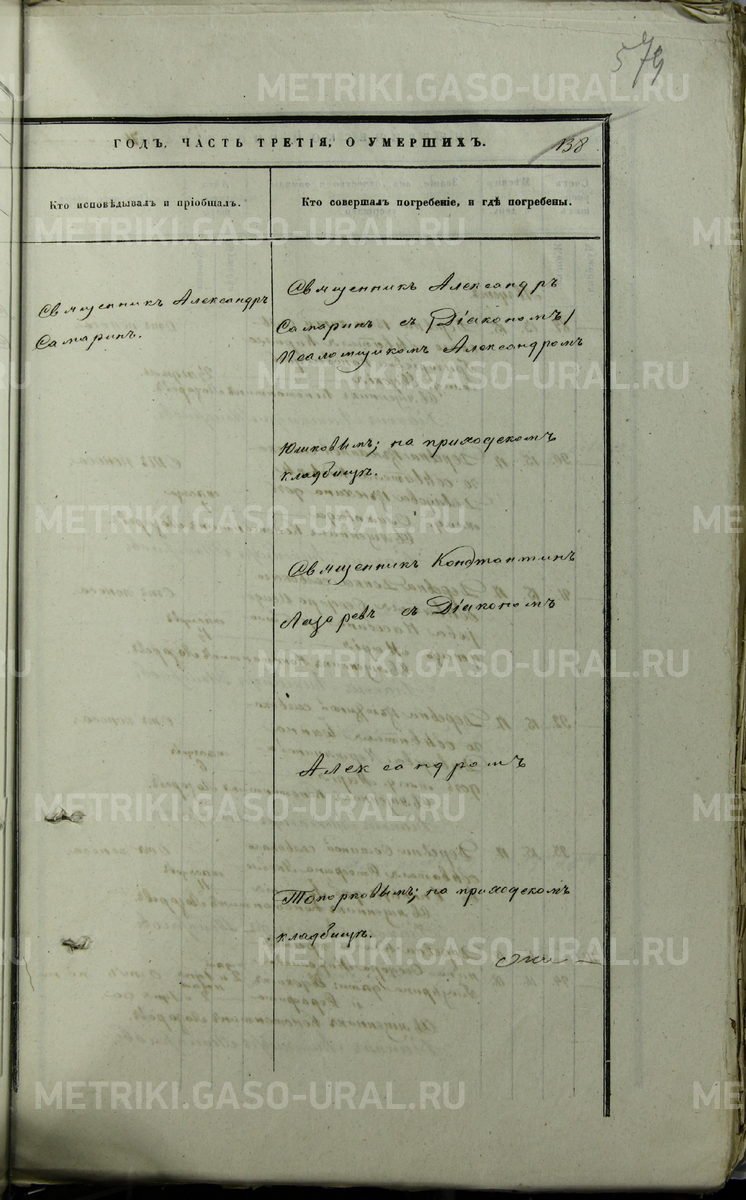 579
ГОДЪ, ЧАСТЬ ТРЕТІЯ, О УМЕРШИХЪ.
138
Кто исповѣдывалъ и пріобщалъ.
Кто совершалъ погребеніе, и гдѣ погребены.
Священникъ Александръ
Самаринъ.
Священникъ Александръ
Самаринъ съ /Діакономъ/
Псаломщикомъ Александромъ
Юшковымъ; на приходскомъ
кладбищѣ.
Священникъ Константинъ
Лазаревъ съ Діакономъ
Александромъ
Топорковымъ; на приходскомъ
кладбищѣ.
METRIKI.GASO-URAL.RU